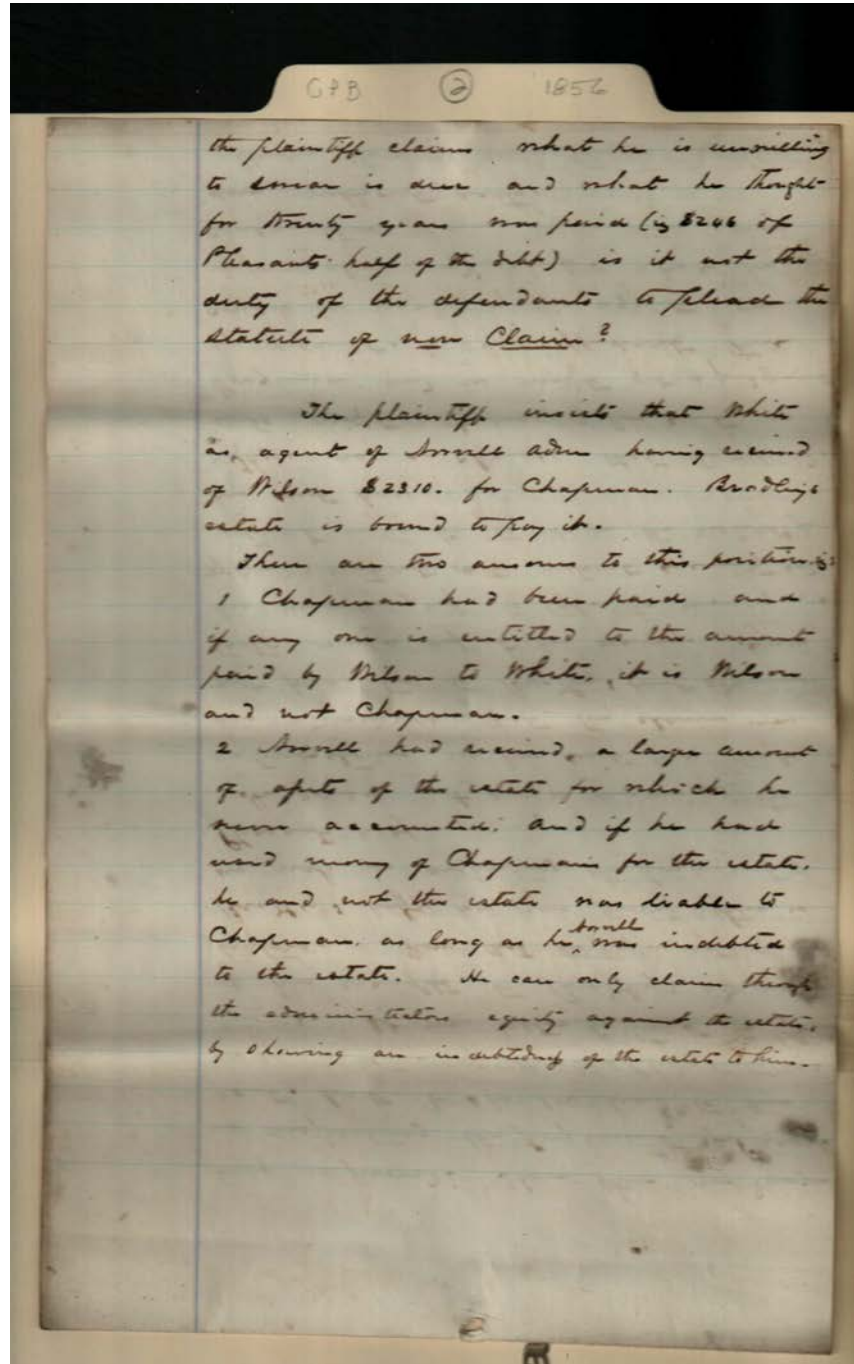 GPB 2 1856
the plaintiff claims what he is unwilling
to swear is due and what he thought
for twenty years was paid ( $246 of
Pleasants half of the debt) is it not the
duty of the defendants to plead the
statute of non Claim?
The plaintiff insists that White
as agent of Norvell Admr having received
of Wilson $2310. for Chapman. Bradleys
estate is bound to pay it.
There are two answers to this position
1 Chapman had been paid and
if any one is entitled to the amount
paid by Wilson to White, it is Wilson
and not Chapman.
2 Norvell had received, a large amount
of assets of the estate for which he
never accounted. and if he had
used money of Chapmans for the estate.
he and not the estate was liable to
Chapman. as long as he Norvell was indebted
to the estate. He can only claim through
the administrators equity against the estate,
by showing an indebtedness of the estate to him.